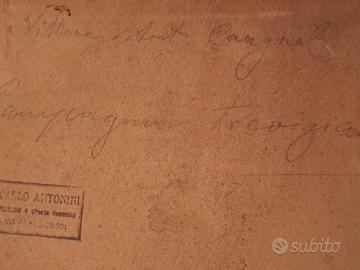 Vittore Ant Cargnel
Campagna Trevigiana
CARLO ANTONINI
(Porta Venezia)
subito